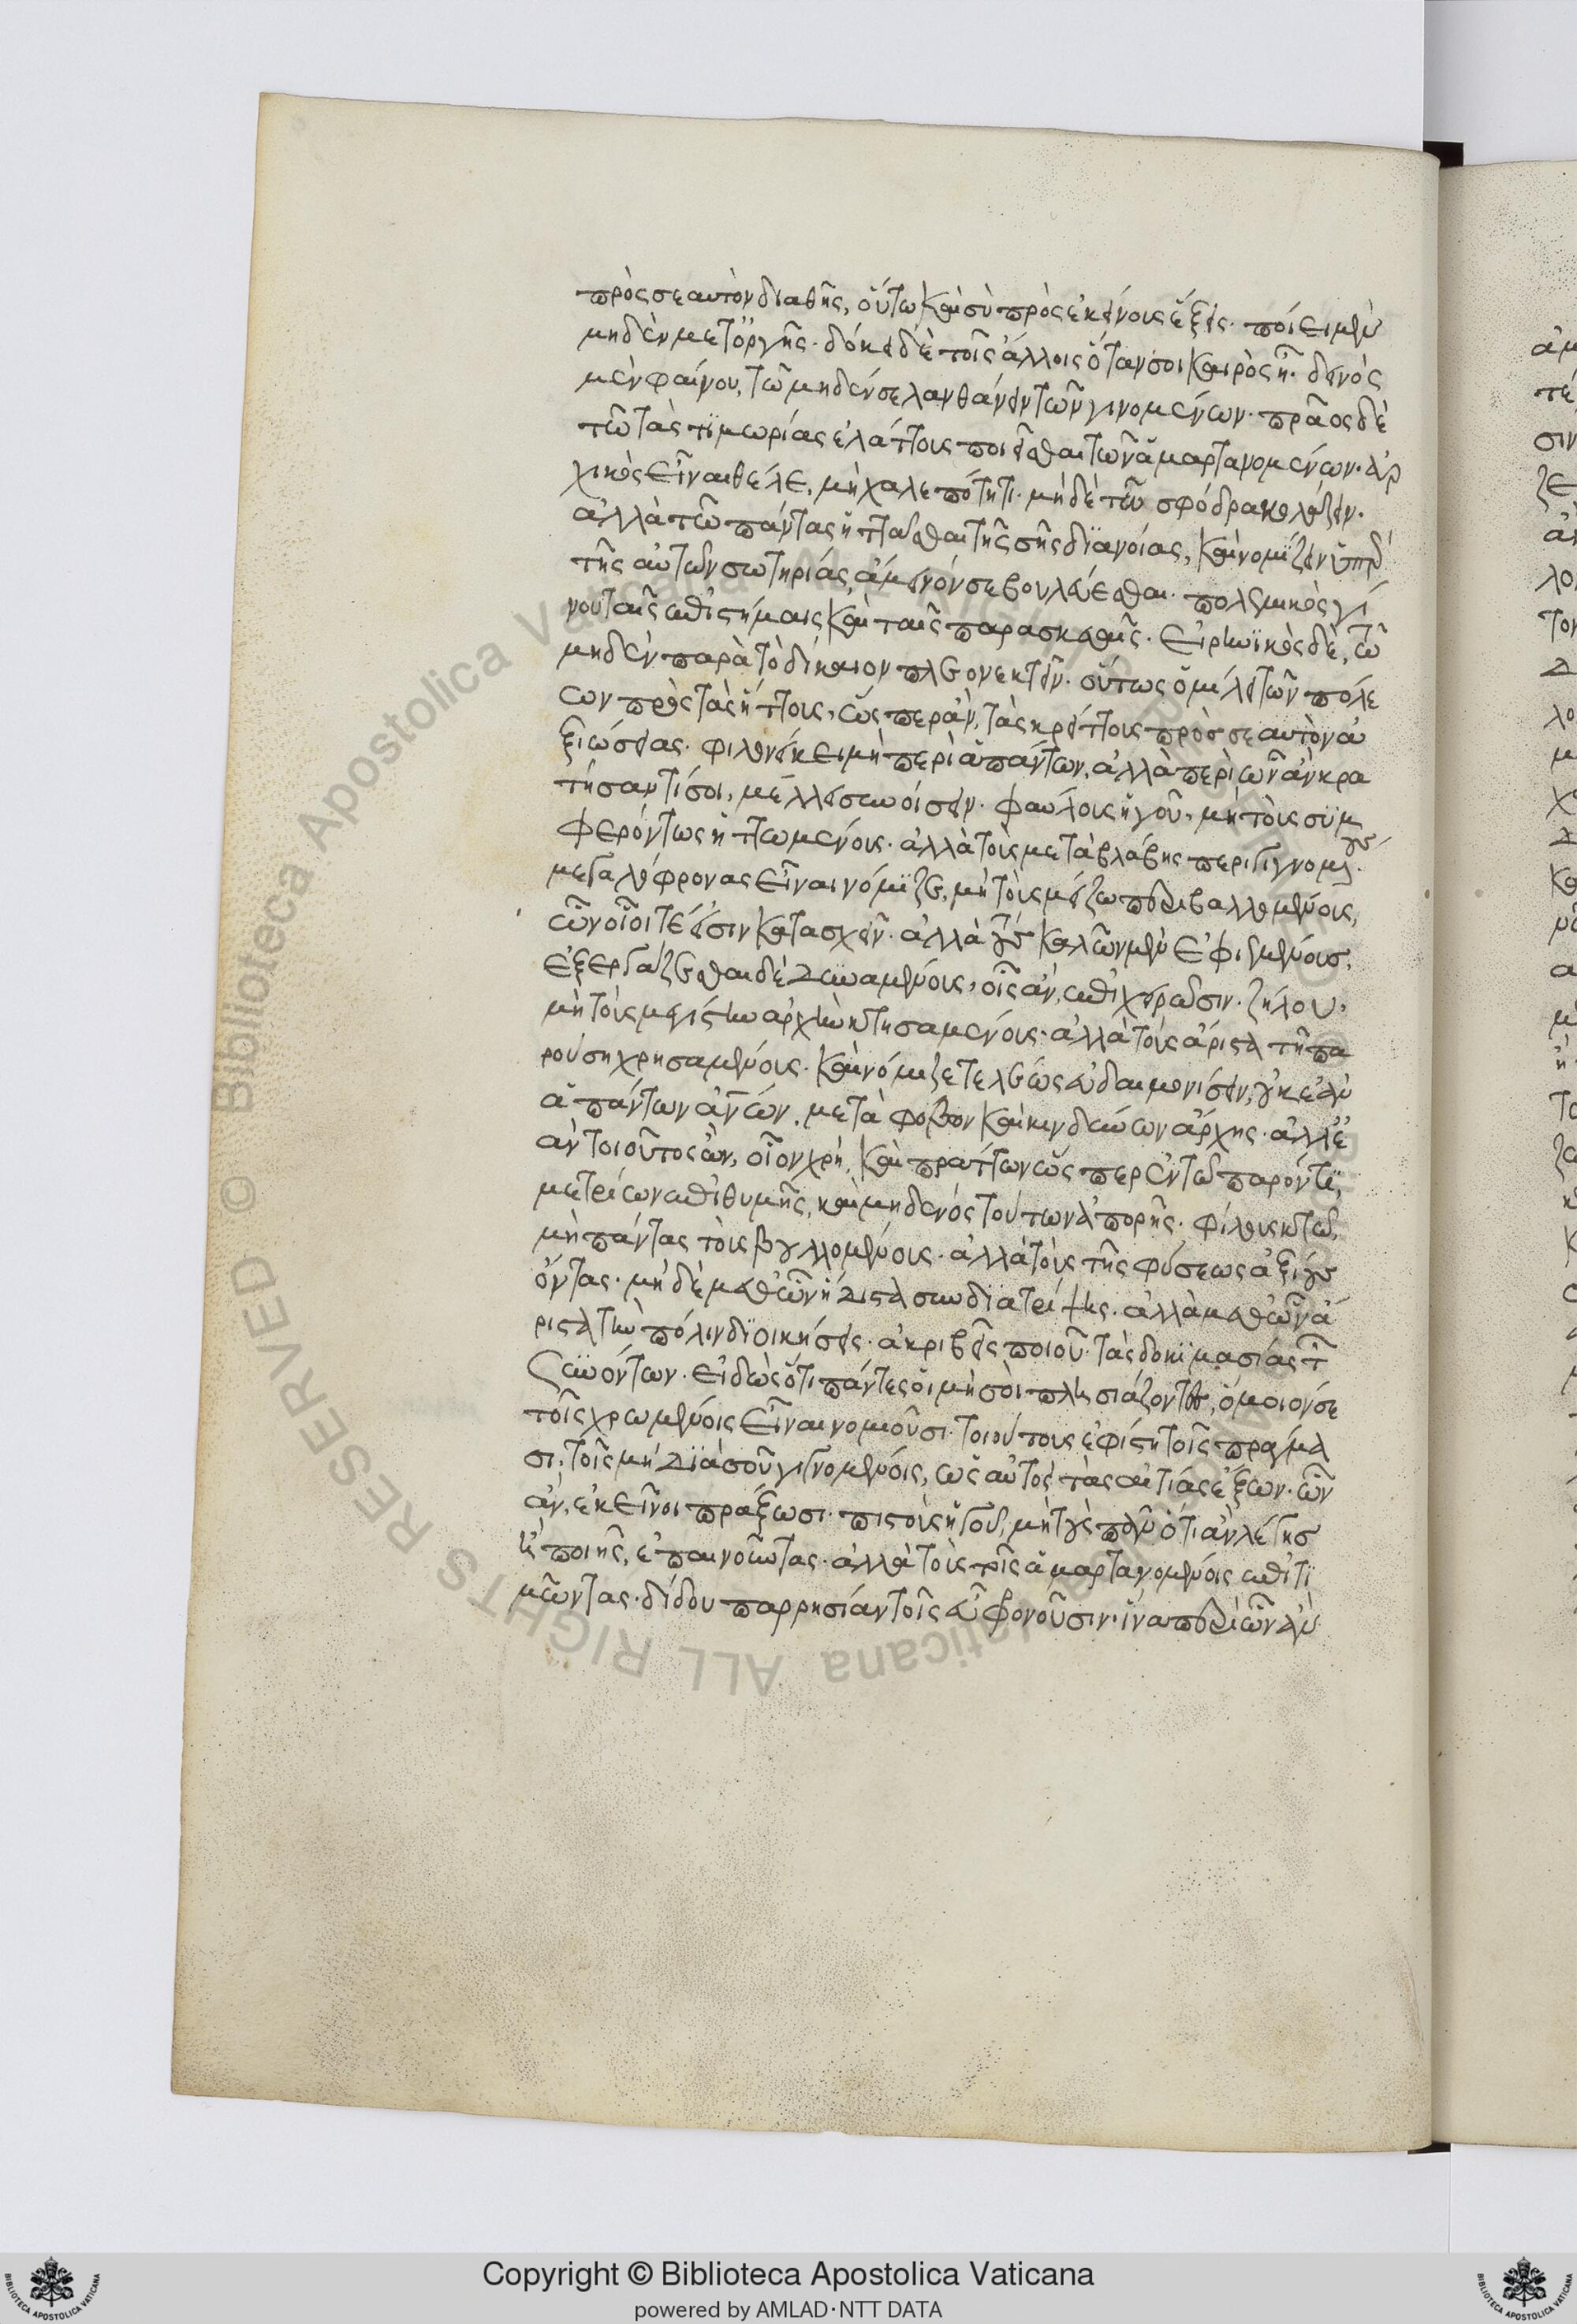 πρὸς σεαυτὸν διαθῆς, οὕτω καὶ σὺ πρὸς ἐκείνους ἕξεις. ποίει μὲν
μηδὲν μετ' ὀργῆς. δόκει δὲ τοῖς ἄλλοις ὅταν σοι καιρὸς ᾖ. δεινὸς
μὲν φαίνου, τῶ μηδέν σε λανθάνειν τῶν γινομένων. πρᾶος δὲ
τῶ τὰς τιμωρίας ἐλάττους ποιεῖσθαι τῶν ἁμαρτανομένων. ἀρ
χικὸς εἶναι θέλε, μὴ χαλεπότητι. μὴ δὲ τῶ σφόδρα κολάζειν.
ἀλλὰ τῶ πάντας ἡττᾶσθαι τῆς σῆς διανοίας, καὶ νομίζειν ὑπὲρ
τῆς αὐτῶν σωτηρίας, ἄμεινόν σε βουλεύεσθαι. πολεμικὸς γί
νου ταῖς ἐπιστήμαις καὶ ταῖς παρασκευαῖς. εἰρηνικὸς δὲ, τῶ
μηδὲν παρὰ τὸ δίκαιον πλεονεκτεῖν. οὕτως ὁμίλει τῶν πόλε
ων πρὸς τὰς ἥττους, ὥσπερ ἂν, τὰς κρείττους πρὸς σεαυτὸν ἀ
ξιώσειας. φιλονείκει μὴ περὶ ἁπάντων, ἀλλὰ περὶ ὧν ἂν κρα
τήσαντί σοι, μέλλει συνοίσειν. φαύλους ἡγοῦ, μὴ τοὺς συμ
φερόντως ἡττωμένους. ἀλλὰ τοὺς μετὰ βλάβης περιγιγνομένους.
μεγαλόφρονας εἶναι νόμιζε, μὴ τοὺς μείζω περιβαλλομένους,
ὧν οἷοί τέ εἰσιν κατασχεῖν. ἀλλὰ τοὺς καλῶν μὲν ἐφιεμένους,
ἐξεργάζεσθαι δὲ δυναμένους, οἷς ἂν, ἐπιχειρῶσιν. ζήλου,
μὴ τοὺς μεγίστην ἀρχὴν κτησαμένους. ἀλλὰ τοὺς ἄριστα τῆ πα
ρούση χρησαμένους. καὶ νόμιζε τελέως εὐδαιμονήσειν, οὐκ ἐὰν
ἁπάντων ἀνων, μετὰ φόβων καὶ κινδύνων ἄρχης. ἀλλ' ἐ
ὰν τοιοῦτος ὢν, οἷον χρὴ, καὶ πράττων ὥσπερ ἐν τῶ παρόντι,
μετρίων ἐπιθυμῆς, καὶ μηδενὸς τούτων ἀπορῆς. φίλους κτῶ,
μὴ πάντας τοὺς βουλομένους. ἀλλὰ τοὺς τῆς φύσεως ἀξίους
ὄντας. μὴ δὲ μεθ' ὧν ἥδιστα συνδιατρίψεις. ἀλλὰ μεθ' ὧν ἄ
ριστα τὴν πόλιν διοικήσεις. ἀκριβεῖς ποιοῦ τὰς δοκιμασίας τῶν
συνόντων. εἰδὼς ὅτι πάντες οἱ μὴ σοὶ πλησιάζοντες, ὅμοιόν σε
τοῖς χρωμένοις εἶναι νομιοῦσι. τοιούτους ἐφίστη τοῖς πράγμα
σι, τοῖς μὴ διὰ σοῦ γιγνομένοις, ὡς αὐτὸς τὰς αἰτίας ἕξων. ὧν
ἂν, ἐκεῖνοι πράξωσι. πιστοὺς ἡγοῦ, μὴ τοὺς πᾶν ὅτι ἂν λέγης
ἢ ποιῆς, ἐπαινοῦντας. ἀλλὰ τοὺς τοῖς ἁμαρτανομένοις ἐπιτι
μῶντας. δίδου παρρησίαν τοῖς εὖ φρονοῦσιν. ἵνα περὶ ὧν ἂν
Copyright © Biblioteca Apostolica Vaticana
powered by AMLAD·NTT DATA